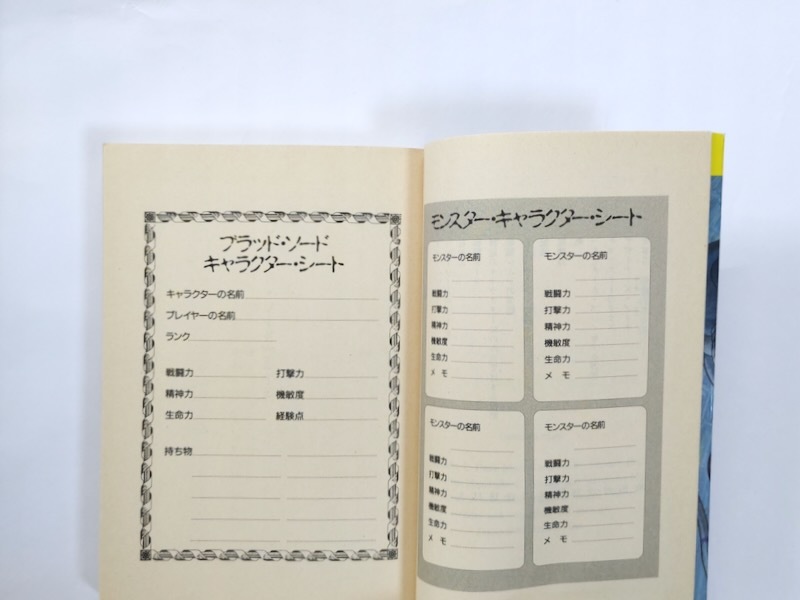 ブラッド・ソード
キャラクター・シート
キャラクターの名前
プレイヤーの名前
ランク
戦闘力 打撃力
精神力 機敏度
生命力 経験点
持ち物
モンスター・キャラクター・シート
モンスターの名前
戦闘力
打撃力
精神力
機敏度
生命力
メモ
モンスターの名前
戦闘力
打撃力
精神力
機敏度
生命力
メモ
モンスターの名前
戦闘力
打撃力
精神力
機敏度
生命力
メモ
モンスターの名前
戦闘力
打撃力
精神力
機敏度
生命力
メモ